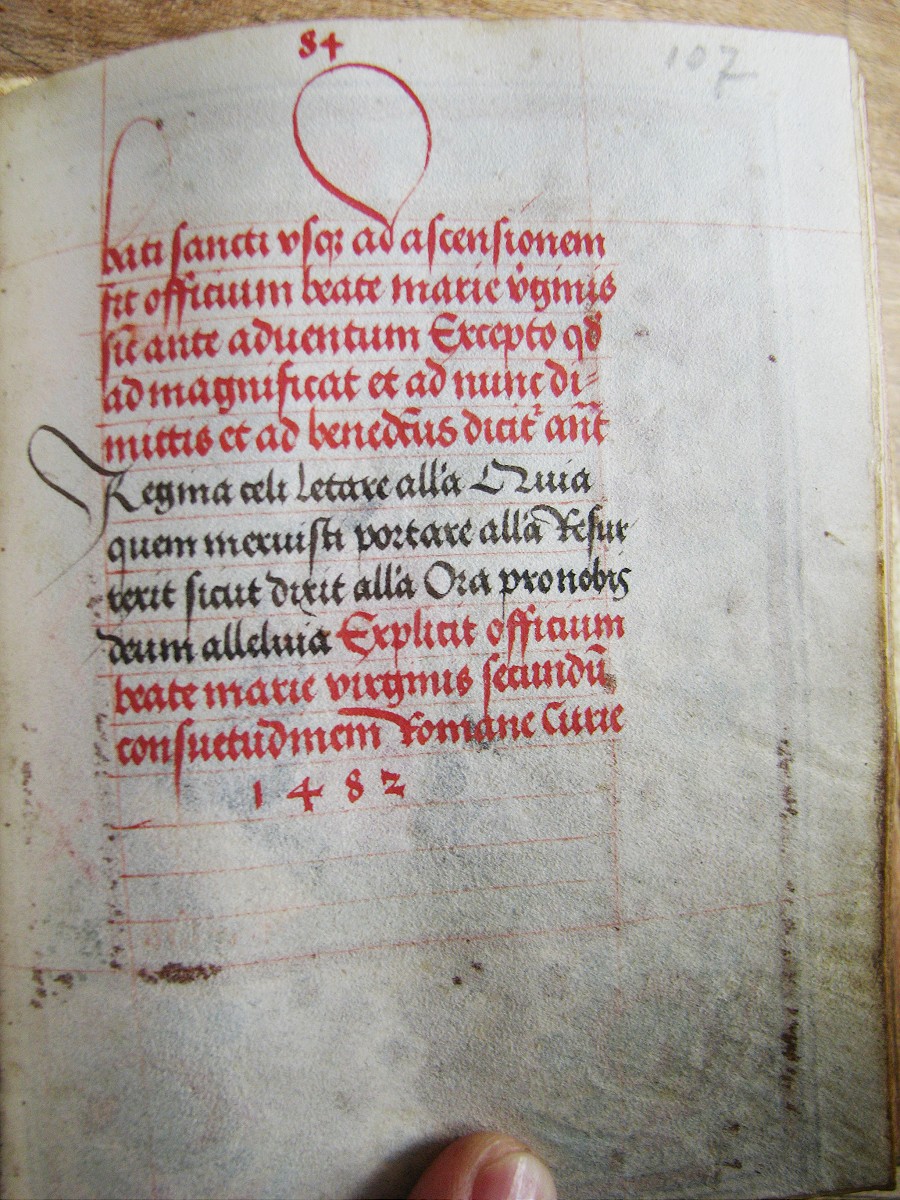 84
107
bati sancti vsqꝫ ad ascensionem
fit officium beate marie v̇ginis
sic̄ ante aduentum Excepto qđ
ad magnificat et ad nunc di-
mittis et ad bened̄cus dicit᷑ an̄t
Regina celi letare all'a Quia
quem meruisti portare all'a Resur
rexit sicut dixit all'a Ora pro nobis
deum alleluia Explicit officium
beate marie virginis secundū
consuetudinem Romane Curie
1482